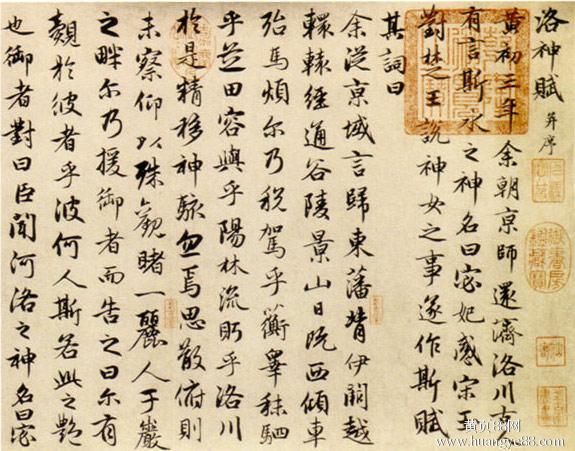 洛神賦 并序
黄初三年余朝京師還濟洛川古
有言斯水之神名曰宓妃感宋玉
對楚王說神女之事遂作斯賦
其詞曰
余從京域言歸東藩背伊闕越
轘轅經通谷陵景山日既西傾車
殆馬煩尔乃税駕乎蘅皋秣駟
乎芝田容與乎陽林流眄乎洛川
於是精移神駭忽焉思散俯則
未察仰以殊觀睹一麗人于巖
之畔尔乃援御者而告之曰尔有
覿於彼者乎彼何人斯若此之艷
也御者對曰臣聞河洛之神名曰宓
黄页88网
www.huangye88.com